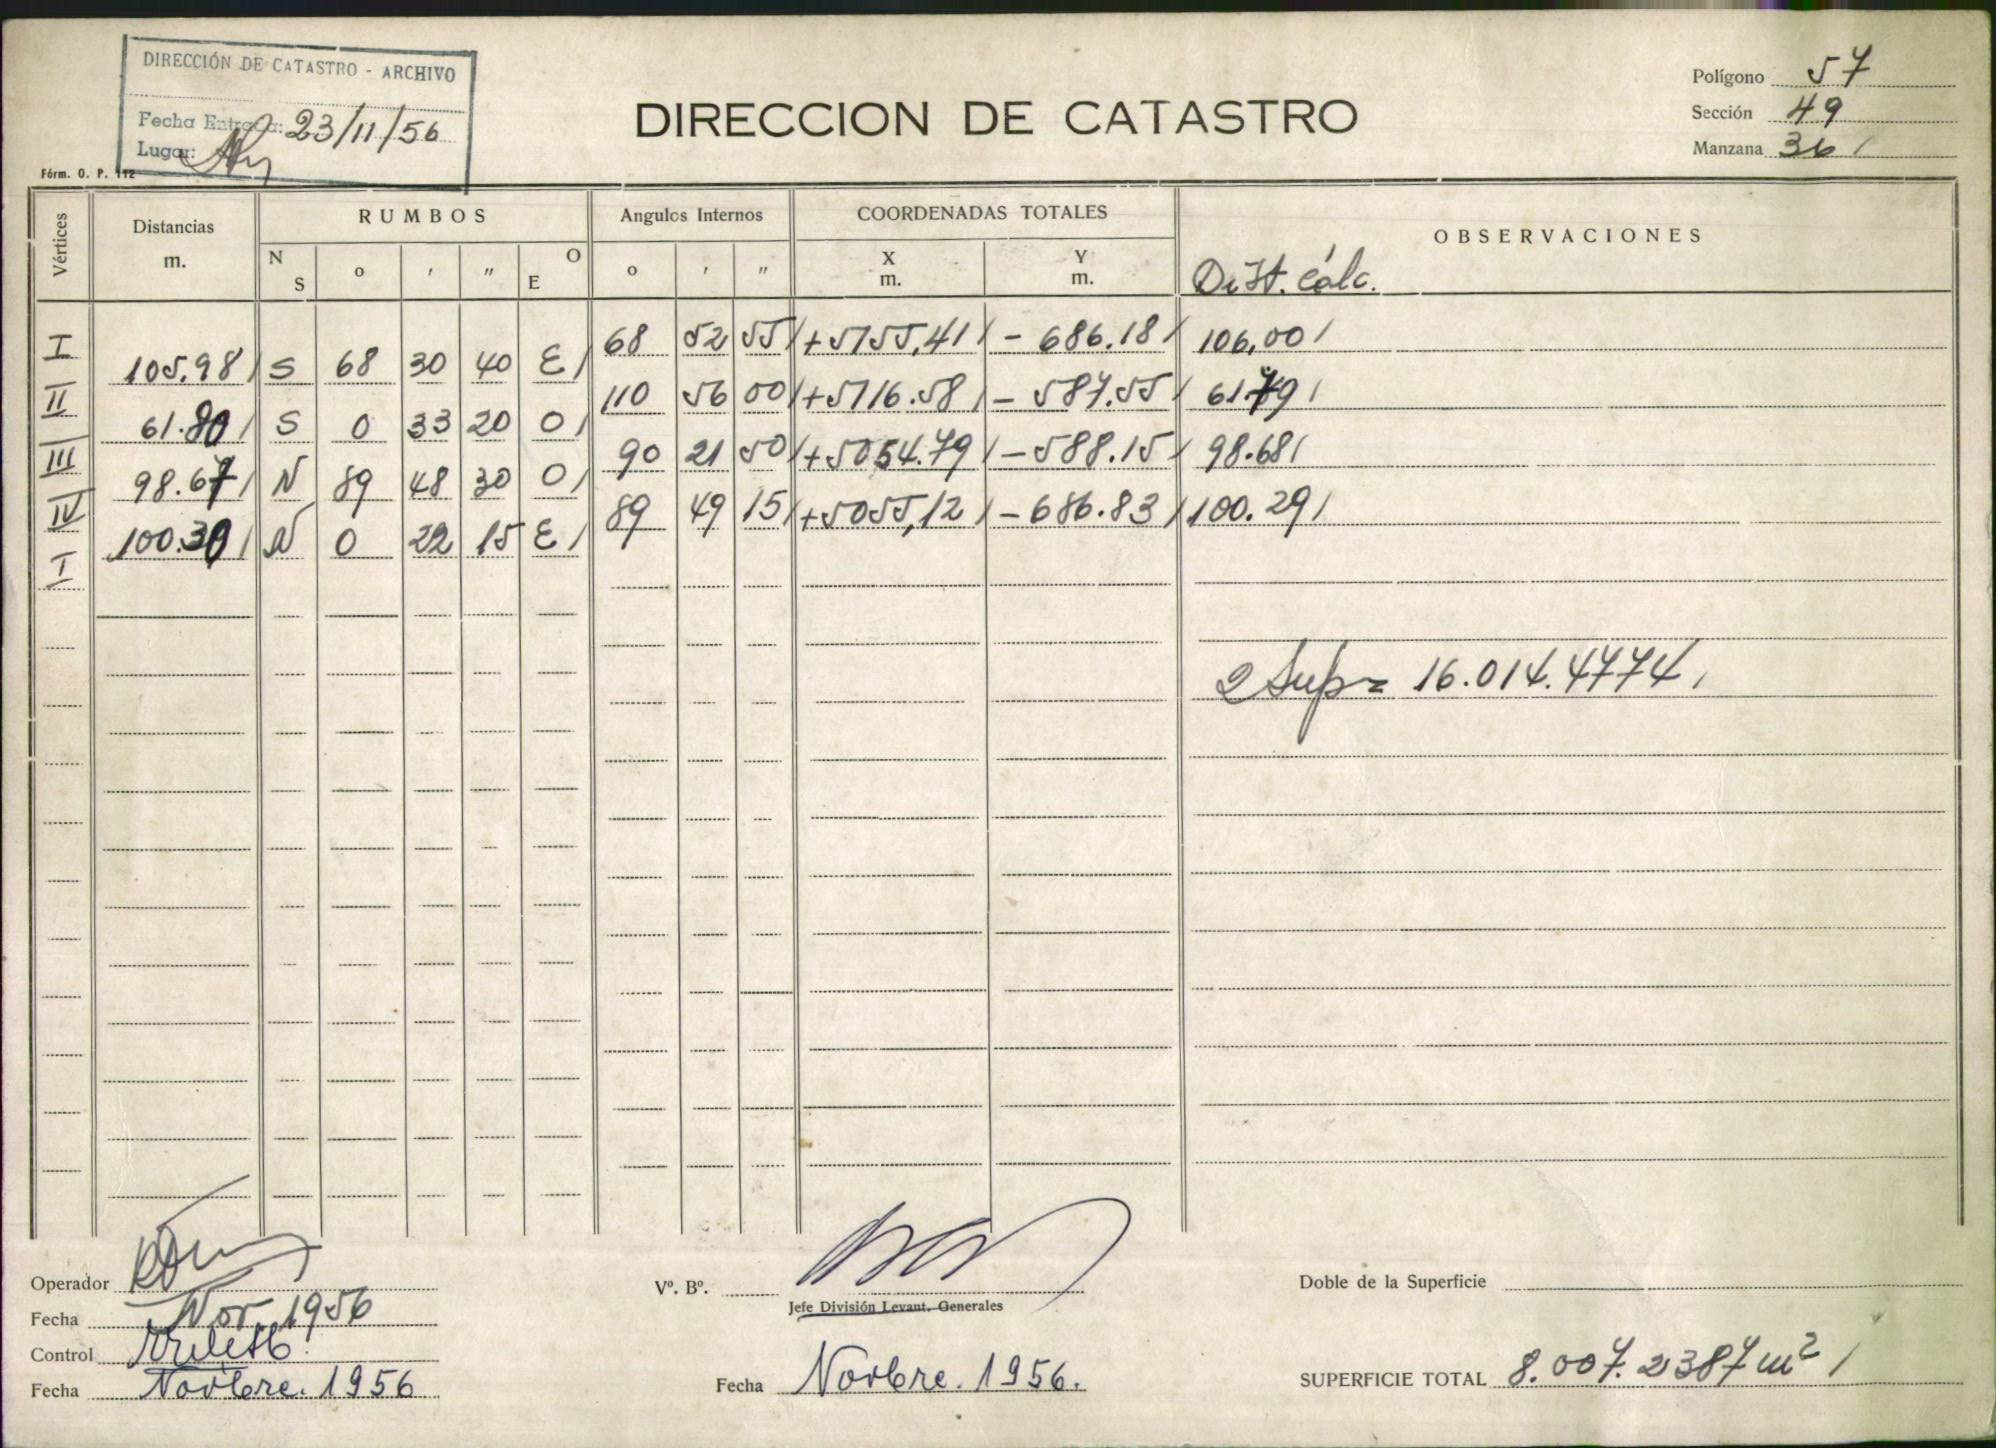 DIRECCIÓN DE CATASTRO - ARCHIVO
Fecha Entrada: 23/11/56
Lugar:
Fórm. O. P. 112
DIRECCION DE CATASTRO
Polígono 57
Sección 49
Manzana 36 /
Vértices Distancias m. RUMBOS N S o ' " O E Angulos Internos o ' " COORDENADAS TOTALES X m. Y m. OBSERVACIONES
Dist. Cálc.
I 68 52 55/ +5155,41/ - 686.18/ 106,00/
105.98/ S 68 30 40 E/
II 110 56 00/ +5116.58/ - 587.55/ 61.79/
61.80/ S 0 33 20 O/
III 90 21 50/ +5054.79/ - 588.15/ 98.68/
98.67/ N 89 48 30 O/
IV 89 49 15/ +5055,12/ - 686.83/ 100.29/
100.30/ N 0 22 15 E/
I
2 Sup = 16.014.4774/
Operador
Fecha Nov. 1956
Control
Fecha Novbre. 1956
Vº. Bº.
Jefe División Levant. Generales
Fecha Novbre. 1956.
Doble de la Superficie
SUPERFICIE TOTAL 8.007.2387 m² /